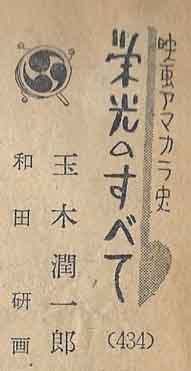 映画アマカラ史
栄光のすべて
(434)
玉木潤一郎
和田研画